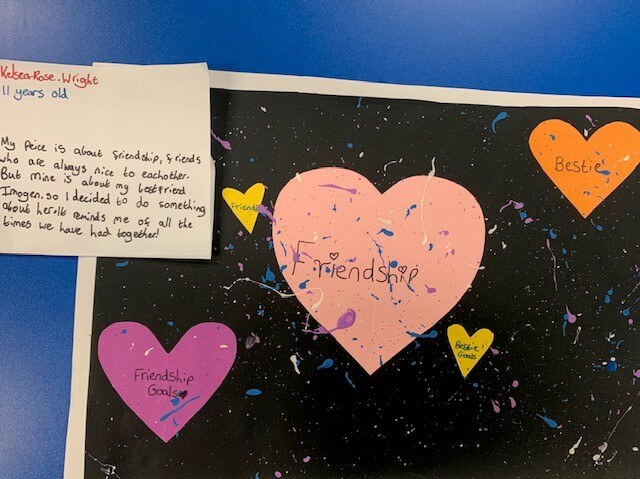 Kelsea-Rose..Wright
11 years old
My Peice is about friendship, friends
who are always nice to eachother.
But mine is about my bestfriend
Imogen. so I decided to do something
about her. It reminds me of all the
times we have had together!
Bestie
Friend
Friendship
Bestie
Goals
Friendship
Goals